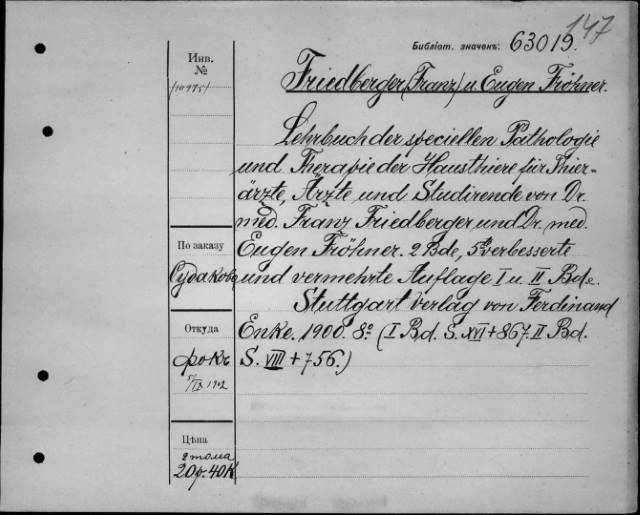 147
Библіот. значекъ: 63019.
Инв. №
Friedberger (Franz) u. Eugen Fröhner.
Lehrbuch der speciellen Pathologie
und Therapie der Hausthiere für Thier-
ärzte, Ärzte und Studirende von Dr.
med. Franz Friedberger und Dr. med.
По заказу
Eugen Fröhner. 2 Bde, 5te verbesserte
Судакова
und vermehrte Auflage I u. II Bde.
Stuttgart Verlag von Ferdinand
Откуда
Enke. 1900. 8º (I Bd. S. XVI + 867. II Bd.
S. VIII + 756.)
Цѣна
2 тома
20р. 40к